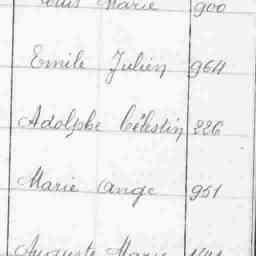 Louis Marie 900
Emile Julien 964
Adolphe Célestin 226
Marie Ange 951
Auguste Marie